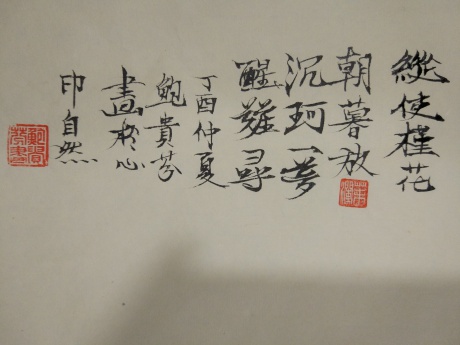 縱使槿花
朝暮放
沉珂一夢
醒難尋
丁酉仲夏
鲍貴芬
畫於心
印自然